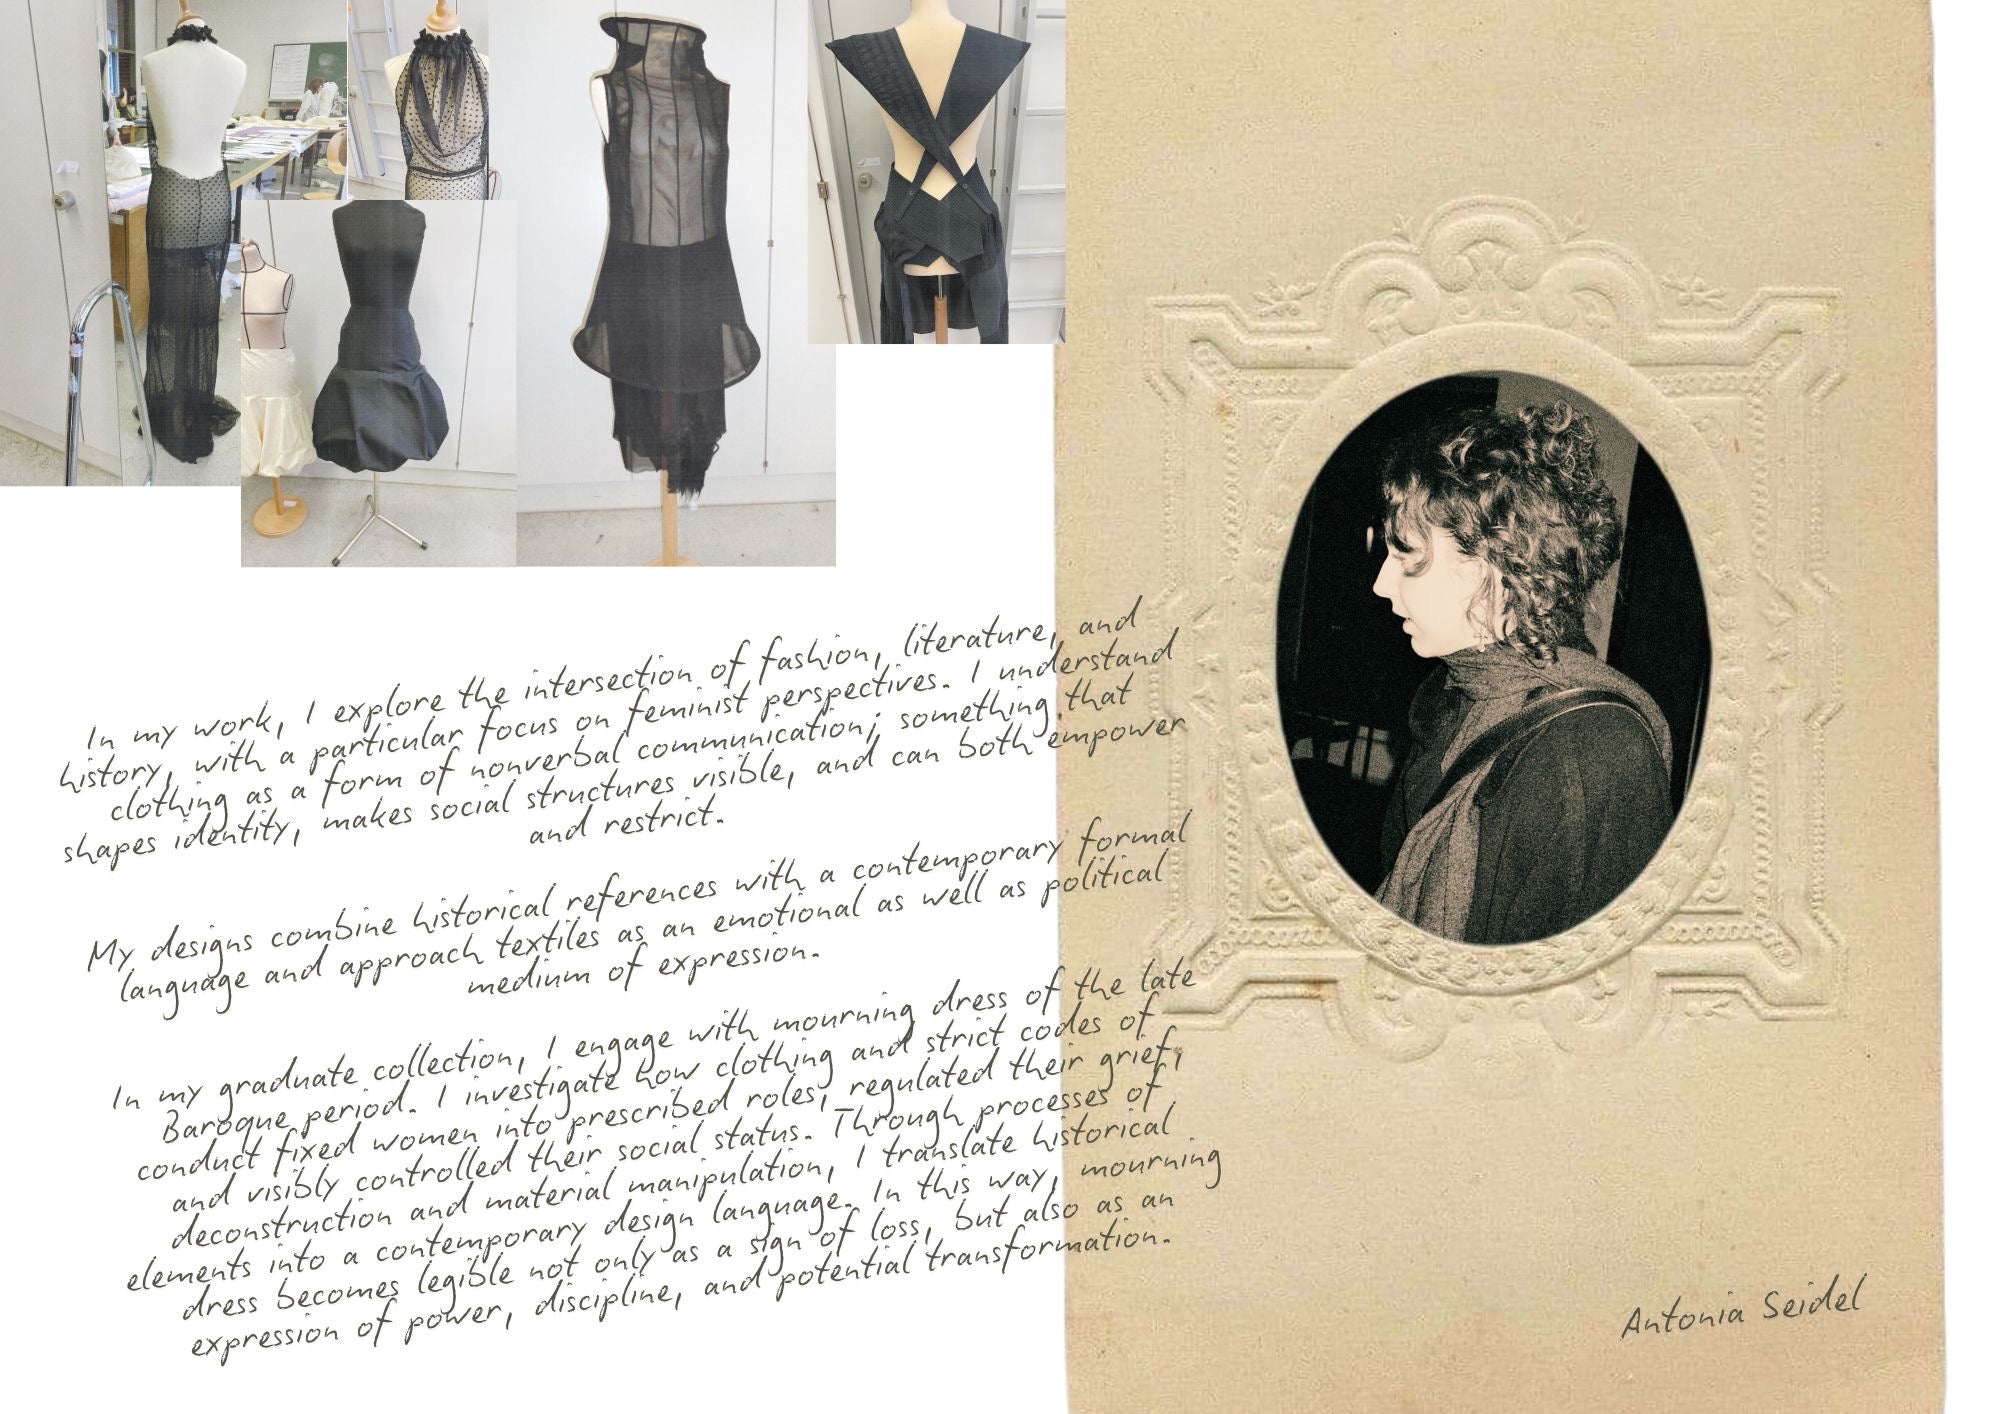 In my work, I explore the intersection of fashion, literature, and
history, with a particular focus on feminist perspectives. I understand
clothing as a form of nonverbal communication; something that
shapes identity, makes social structures visible, and can both empower
and restrict.
My designs combine historical references with a contemporary formal
language and approach textiles as an emotional as well as political
medium of expression.
In my graduate collection, I engage with mourning dress of the late
Baroque period. I investigate how clothing and strict codes of
conduct fixed women into prescribed roles, regulated their grief,
and visibly controlled their social status. Through processes of
deconstruction and material manipulation, I translate historical
elements into a contemporary design language. In this way, mourning
dress becomes legible not only as a sign of loss, but also as an
expression of power, discipline, and potential transformation.
Antonia Seidel